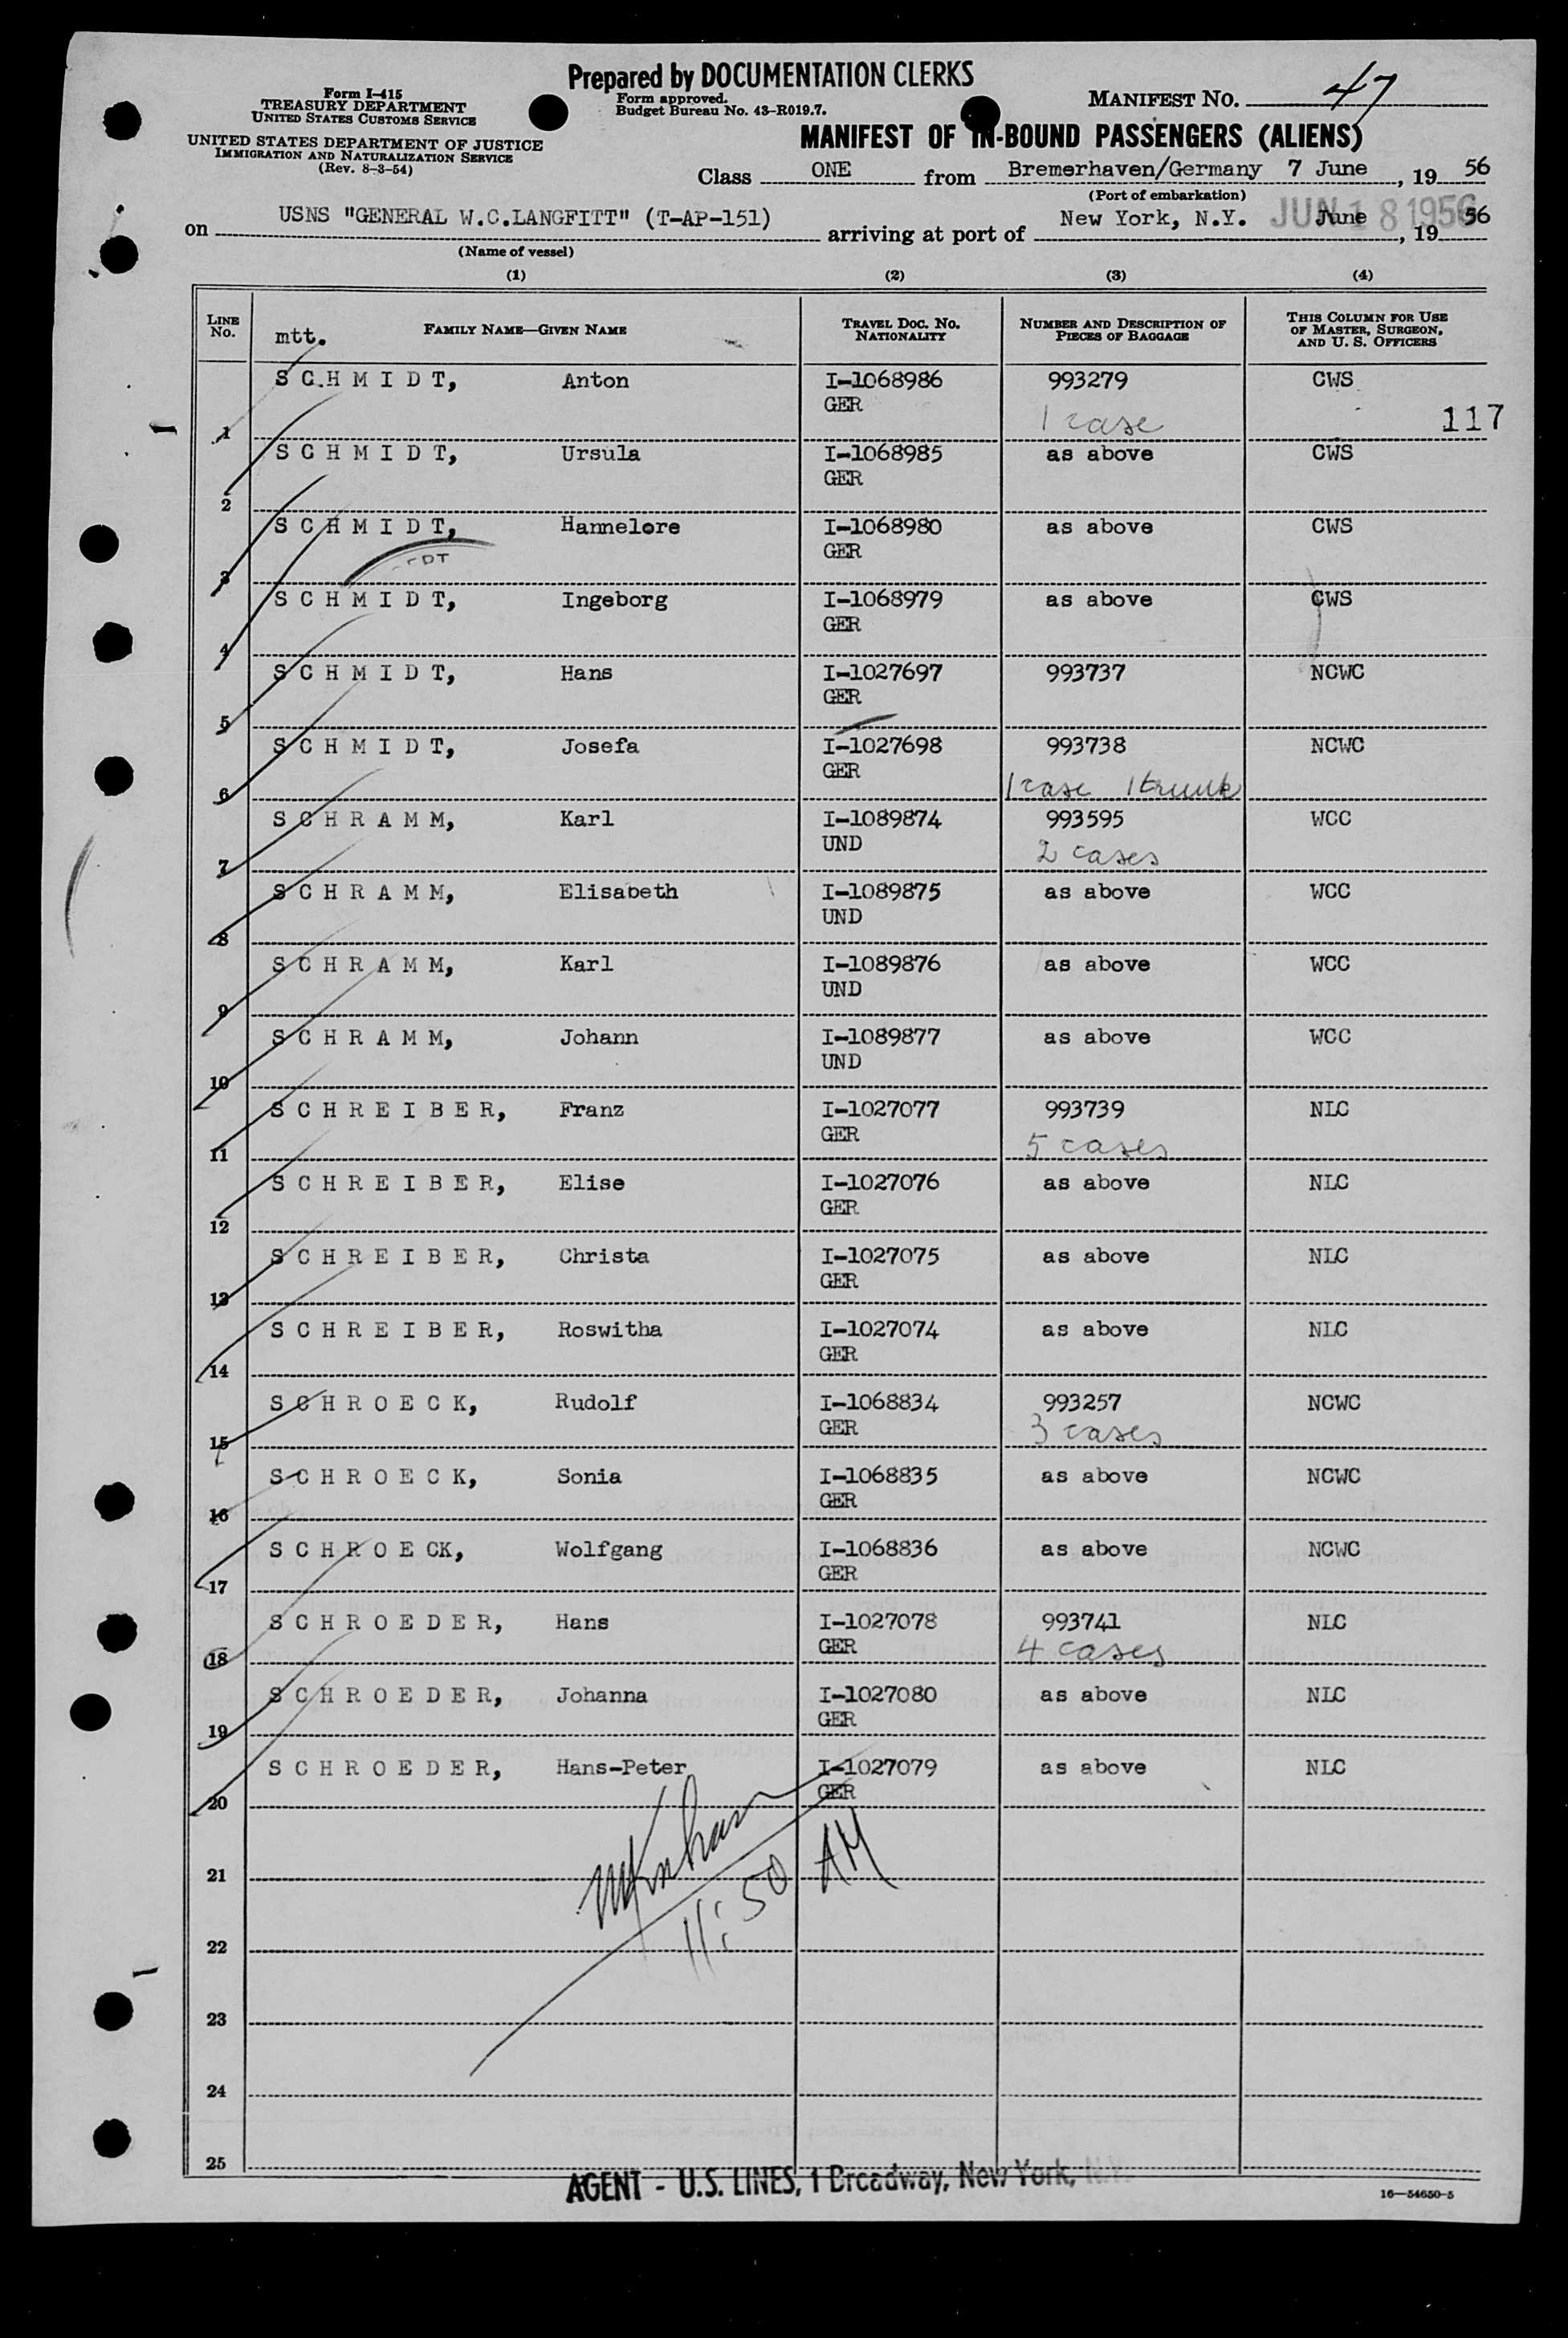 Prepared by DOCUMENTATION CLERKS
Form I-415
TREASURY DEPARTMENT
UNITED STATES CUSTOMS SERVICE
UNITED STATES DEPARTMENT OF JUSTICE
IMMIGRATION AND NATURALIZATION SERVICE
(Rev. 8-3-54)
Form approved.
Budget Bureau No. 43-R019.7.
MANIFEST NO. 47
MANIFEST OF IN-BOUND PASSENGERS (ALIENS)
Class ONE from Bremerhaven/Germany 7 June, 19 56
(Port of embarkation)
on USNS "GENERAL W.C.LANGFITT" (T-AP-151) arriving at port of New York, N.Y. June, 19 56
JUN 18 1956
(Name of vessel)
(1) (2) (3) (4)
LINE NO. mtt. FAMILY NAME—GIVEN NAME TRAVEL DOC. NO. NATIONALITY NUMBER AND DESCRIPTION OF PIECES OF BAGGAGE THIS COLUMN FOR USE OF MASTER, SURGEON, AND U. S. OFFICERS
S C H M I D T, Anton I-1068986 993279 CWS
GER
1 1 case 117
S C H M I D T, Ursula I-1068985 as above CWS
GER
2
S C H M I D T, Hannelore I-1068980 as above CWS
GER
3
S C H M I D T, Ingeborg I-1068979 as above CWS
GER
4
S C H M I D T, Hans I-1027697 993737 NCWC
GER
5
S C H M I D T, Josefa I-1027698 993738 NCWC
GER
6 1 case 1 trunk
S C H R A M M, Karl I-1089874 993595 WCC
UND 2 cases
7
S C H R A M M, Elisabeth I-1089875 as above WCC
UND
8
S C H R A M M, Karl I-1089876 as above WCC
UND
9
S C H R A M M, Johann I-1089877 as above WCC
UND
10
S C H R E I B E R, Franz I-1027077 993739 NLC
GER 5 cases
11
S C H R E I B E R, Elise I-1027076 as above NLC
GER
12
S C H R E I B E R, Christa I-1027075 as above NLC
GER
13
S C H R E I B E R, Roswitha I-1027074 as above NLC
GER
14
S C H R O E C K, Rudolf I-1068834 993257 NCWC
GER 3 cases
15
S C H R O E C K, Sonia I-1068835 as above NCWC
GER
16
S C H R O E CK, Wolfgang I-1068836 as above NCWC
GER
17
S C H R O E D E R, Hans I-1027078 993741 NLC
GER 4 cases
18
S C H R O E D E R, Johanna I-1027080 as above NLC
GER
19
S C H R O E D E R, Hans-Peter I-1027079 as above NLC
GER
20
21
11:50 AM
22
23
24
25
AGENT - U.S. LINES, 1 Broadway, New York, N.Y.
16—54650-5